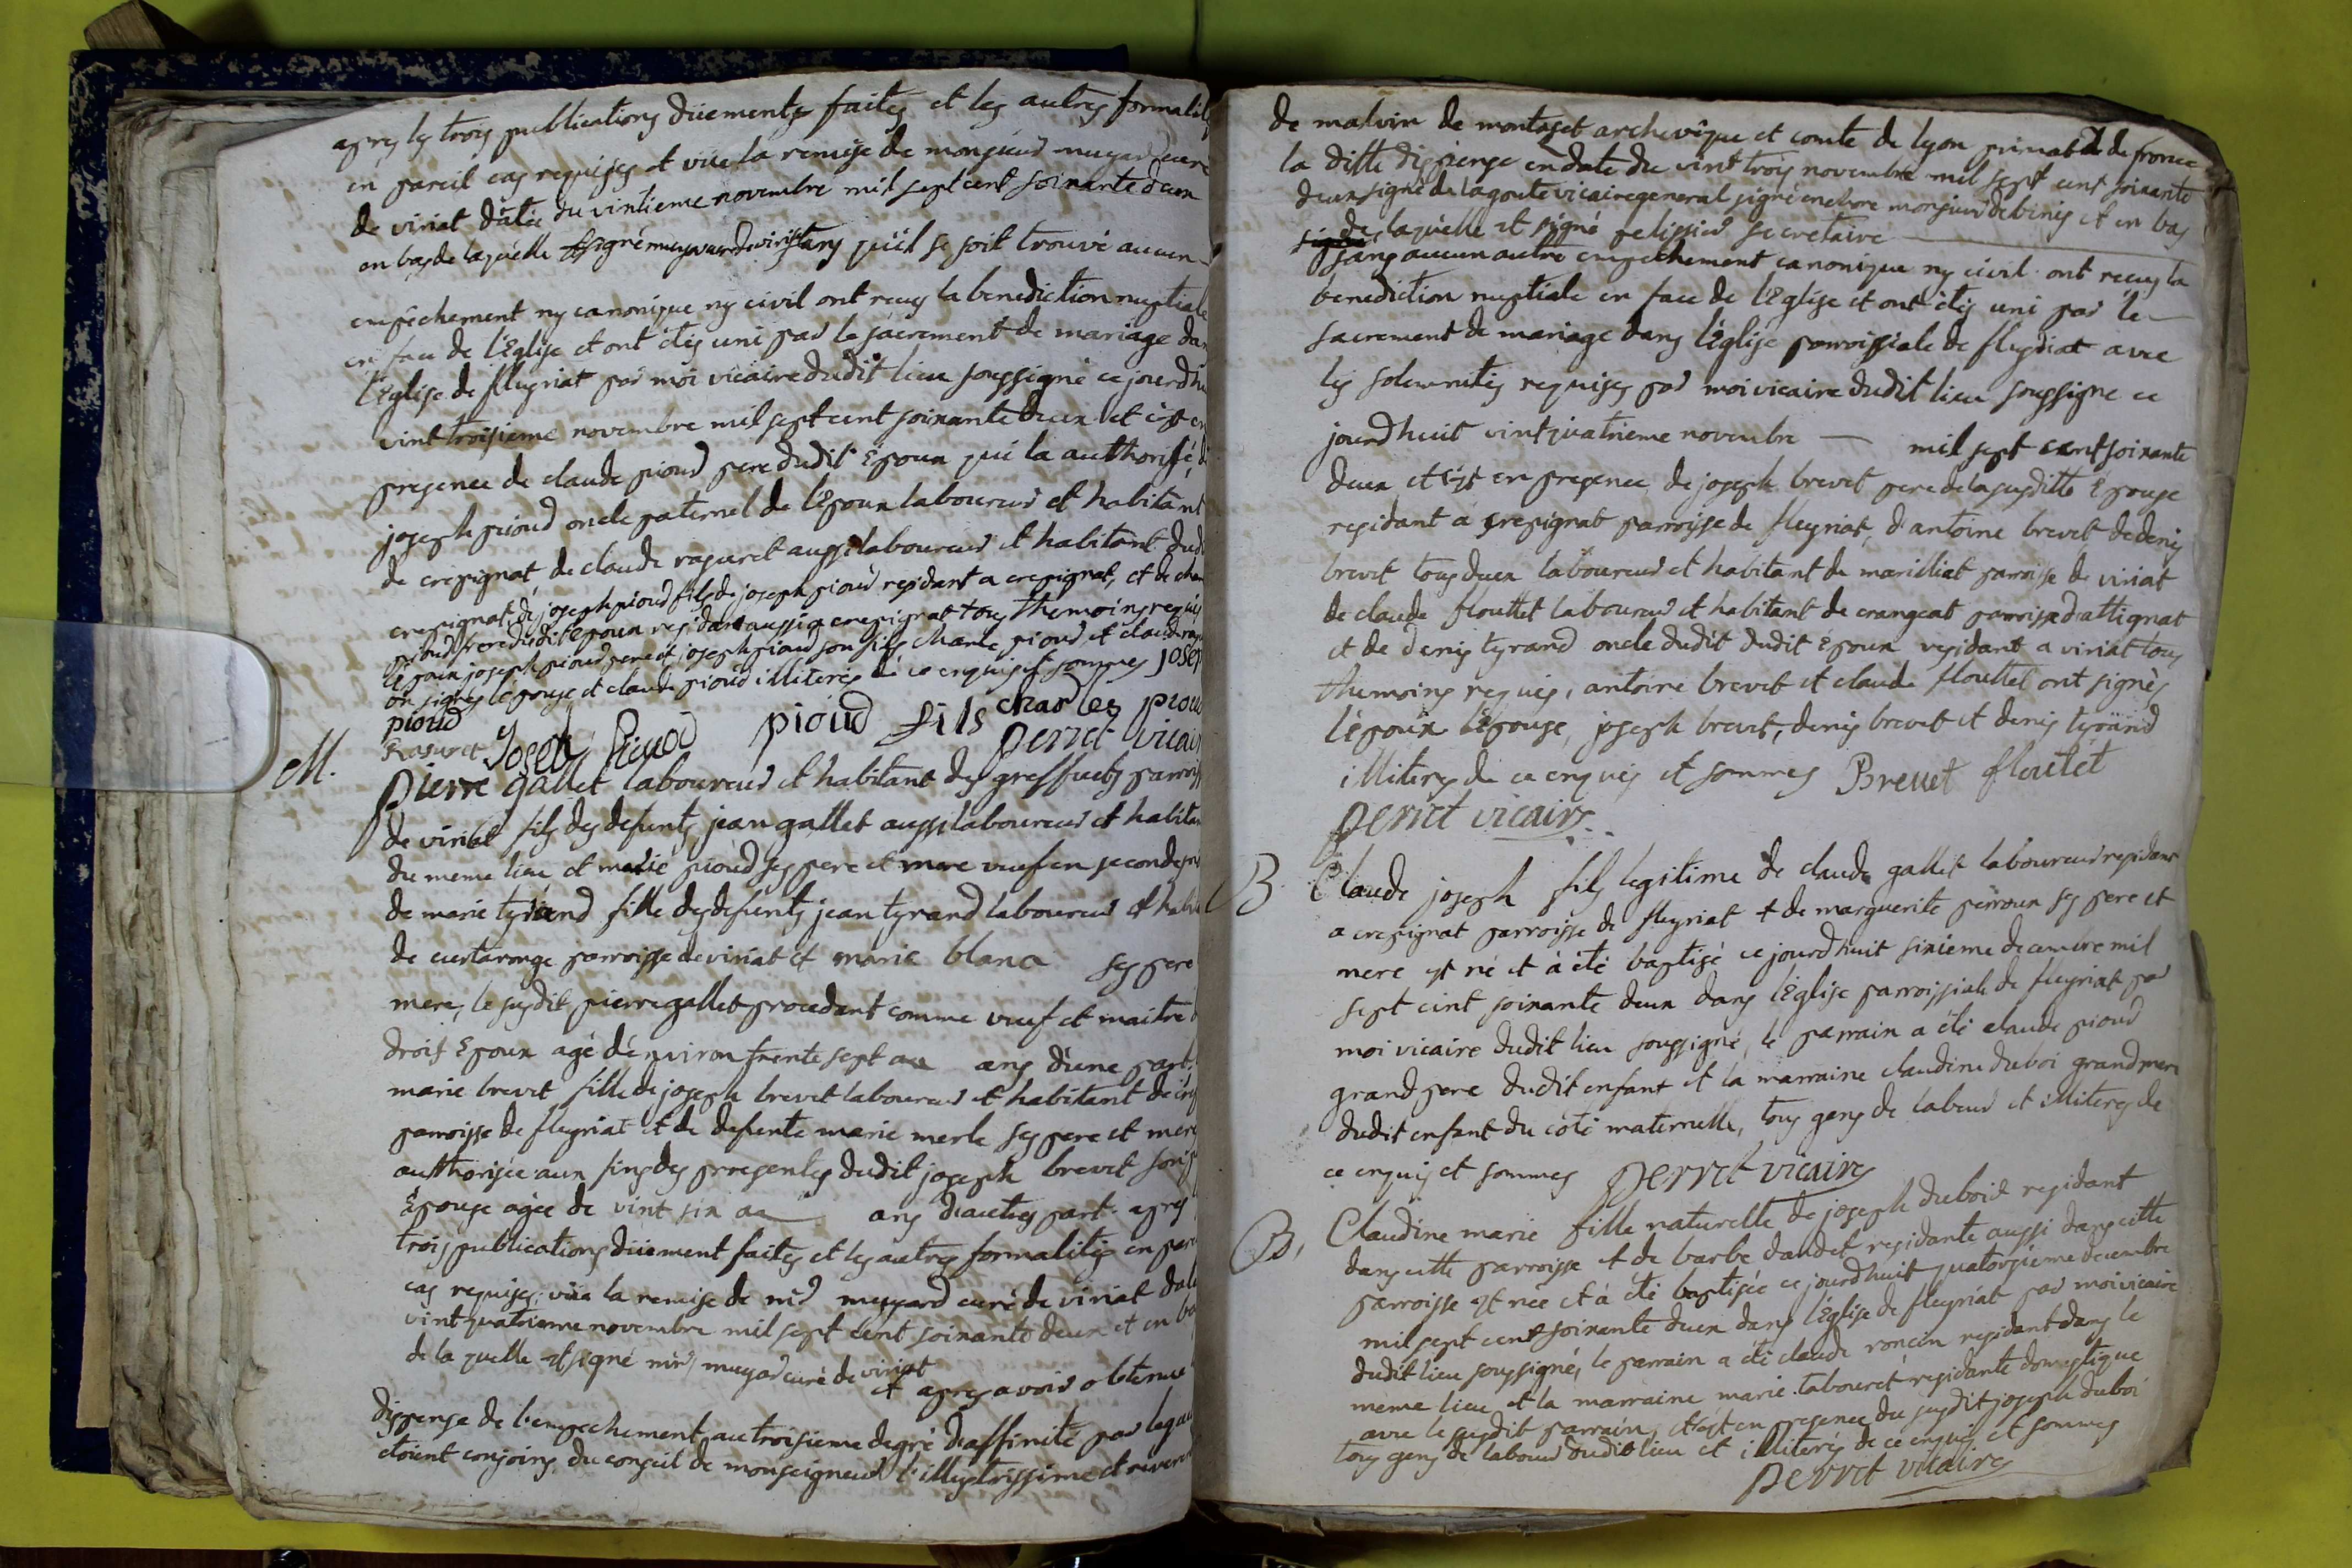 apres les trois publications düements faites et les autres formalit
en pareil cas requises et vüe la remise de monsieur muyard curé
de viriat dâtée du vintieme novembre mil sept cent soixante deux
en bas de laquelle est signé muyard curé de viriat sans qu'il se soit trouvé aucun
empêchement ny canonique ny civil ont reçus la benediction nuptiale
en face de l'Eglise et ont étés uni par le sacrement de mariage da
l'Eglise de fleyriat par moi vicaire dudit lieu soussigné ce jourd'hu
vint troisieme novembre mil sept cent soixante deux et c'est en
presence de claude pioud pere dudit Epoux qui la authorisé, d
joseph pioud oncle paternel de l'Epoux laboureur et habitant
de crepignat de claude rasuret aussi laboureur et habitant dud
crepignat, de joseph pioud fils de joseph pioud residant a crepignat, et de char
pioud frere dudit Epoux residant aussi a crepignat tous themoins requis
l'époux joseph pioud pere et joseph pioud son fils charle pioud et claude rasu
on signés l'épouse et claude pioud illiterés de ce enquis et sommes josep
pioud
Rasuret Joseph Pioud pioud fils charles piou
perret vicair
M. pierre gallet laboureur et habitant des greffiets parroiss
de viriat fils des defunts jean gallet aussi laboureur et habitan
du meme lieu et marie pioud ses pere et mere veuf en secondes
de marie tyrand fille des defunts jean tyrand laboureur et habi
de curtaronge parroisse de viriat et marie blanc ses pere
mere, le susdit pierre gallet procedant comme veuf et maitre d
droit Epoux agé d'environ trente sept ans d'une part.
marie brevet fille de joseph brevet laboureur et habitant de cre
parroisse de fleyriat et de defunte marie merle ses pere et mere
authorisée aux fins des presentes dudit joseph brevet son p
Epouse agée de vint six ans d'autres part. apres
trois publications düement faites et les autres formalités en pare
cas requises, vüe la remise de mr muyard curé de viriat daté
vint quatrieme novembre mil sept cent soixante deux et en ba
de la quelle est signé mr muyard curé de viriat
et apres avoir obtenue
dispense de l'empechement au troisieme degré d'affinité par leque
etoient conjoins, du conseil de monseigneur l'illustrissime et reveren
de malvin de montaset archevêque et comte de lyon primat de france
la ditte dispense en date du vint trois novembre mil sept cent soixante
deux signé de lagoute vicaire general signé encore monsieur debinis et en bas
de laquelle est signé pelissier secretaire
sans aucun autre empechement canonique ny civil ont reçus la
benediction nuptiale en face de l'Eglise et ont étés uni par le
sacrement de mariage dans l'Eglise parroissiale de fleyriat avec
les solemnités requises par moi vicaire dudit lieu soussigné ce
jourd'huit vint quatrieme novembre mil sept cent soixante
deux et c'est en presence de joseph brevet pere de la susditte Epouse
residant a crepignat parroisse de fleyriat, d'antoine brevet de denis
brevet tous deux laboureur et habitant de marilliat parroisse de viriat
de claude flouttet laboureur et habitant de crangeat parroisse d'attignat
et de denis tyrand oncle dudit dudit Epoux residant a viriat tous
themoins requis, antoine brevet et claude flouttet ont signés
l'époux l'épouse, joseph brevet, denis brevet et denis tyrand
illiteres de ce enquis et sommes Brevet floutet
perret vicaire
B. Claude joseph fils legitime de claude gallet laboureur residant
a crepignat parroisse de fleyriat et de marguerite pioud ses pere et
mere est né et à été baptisé ce jourd'huit sixieme decembre mil
sept cent soixante deux dans l'Eglise parroissiale de fleyriat par
moi vicaire dudit lieu soussigné, le parrain a été claude pioud
grand pere dudit enfant et la marraine claudine duboi grand mere
dudit enfant du coté maternelle, tous gens de labeur et illiteres de
ce enquis et sommes perret vicaire
B, Claudine marie fille naturelle de joseph dubois residant
dans cette parroisse et de barbe daudet residante aussi dans cette
parroisse est née et à été baptisée ce jourd'huit quatorsieme decembre
mil sept cent soixante deux dans l'Eglise de fleyriat par moi vicaire
dudit lieu soussigné, le parrain a été claude roncin residant dans le
meme lieu et la marraine marie tabouret residante domestique
avec le susdit parrain, et c'est en presence du susdit joseph duboi
tous gens de labeur dudit lieu et illiterés de ce enquis et sommes
perret vicaire